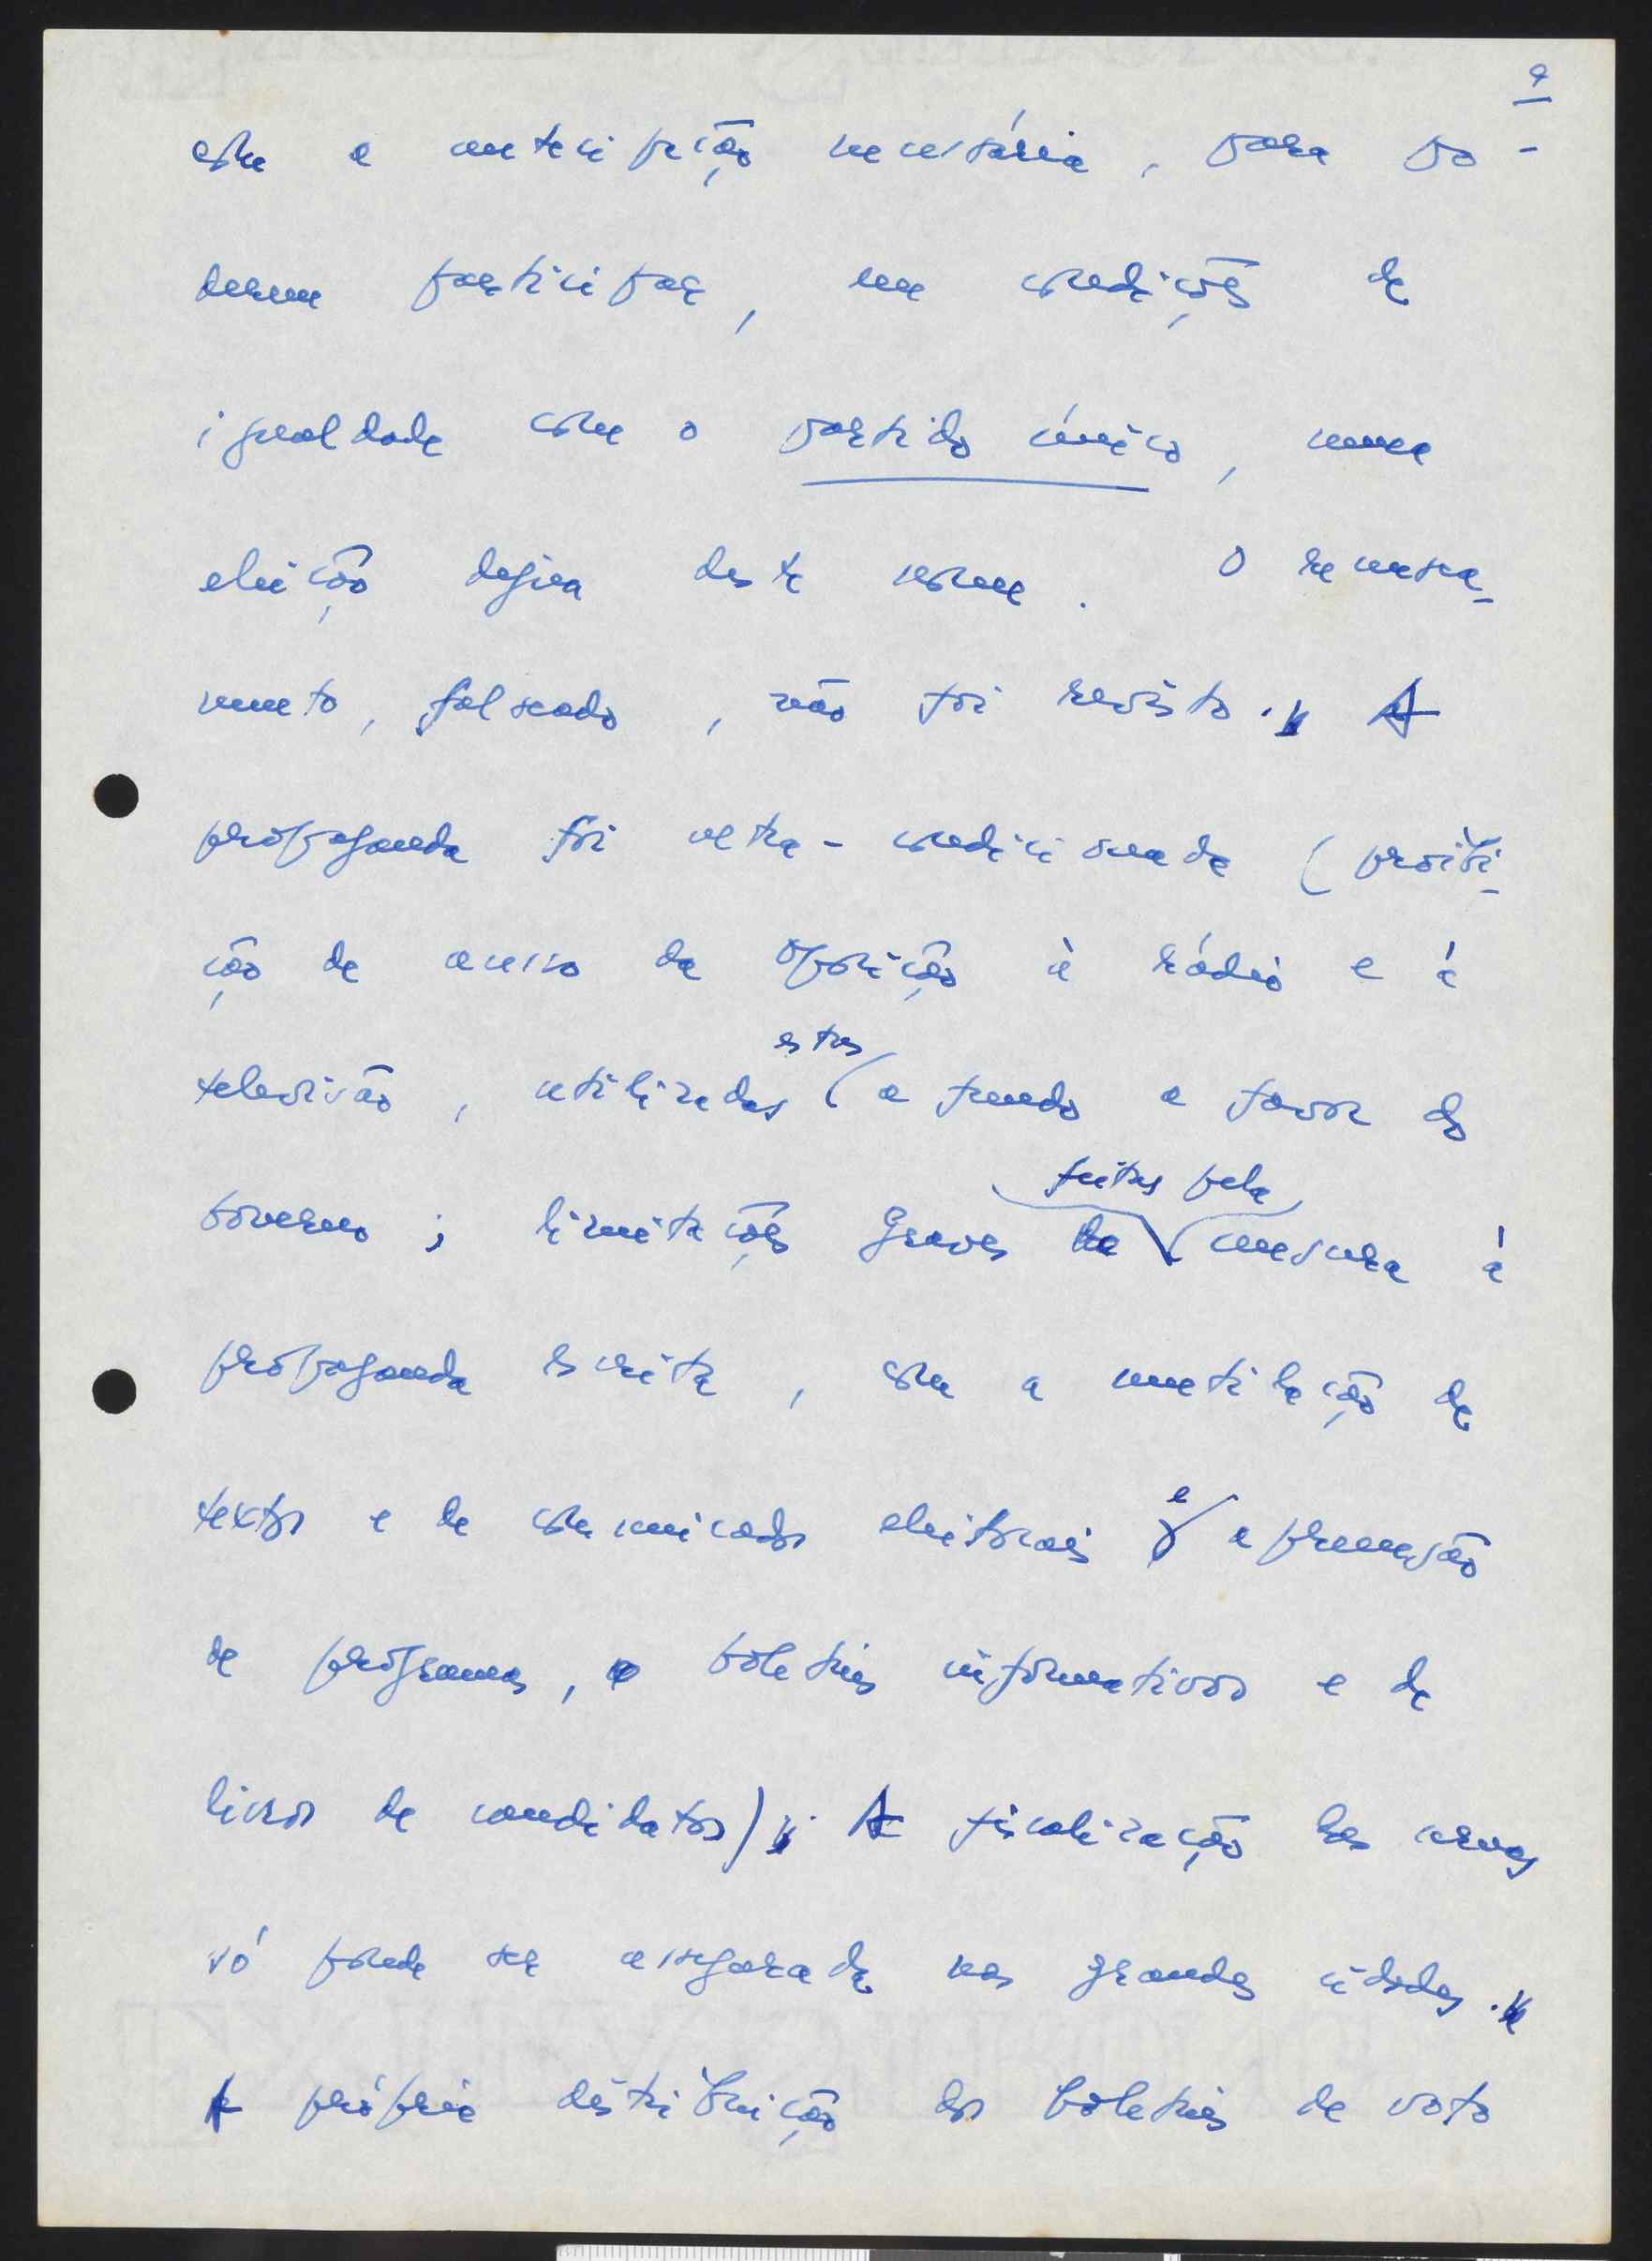 9
com a antecipação necessária, para po-
derem participar, em condições de
igualdade com o partido único, numa
eleição digna deste nome. O recensea-
mento, falseado, não foi revisto. A
propaganda foi ultra-condicionada (proibi-
ção de acesso da oposição à rádio e à
televisão, utilizadas estas a fundo a favor do
Governo; limitações graves feitas pela censura à
propaganda escrita, com a mutilação de
textos e de comunicados eleitorais e apreensão
de programas, boletins informativos e de
livros de candidatos). A fiscalização das urnas
só poude ser assegurada nas grandes cidades.
A própria distribuição dos boletins de voto